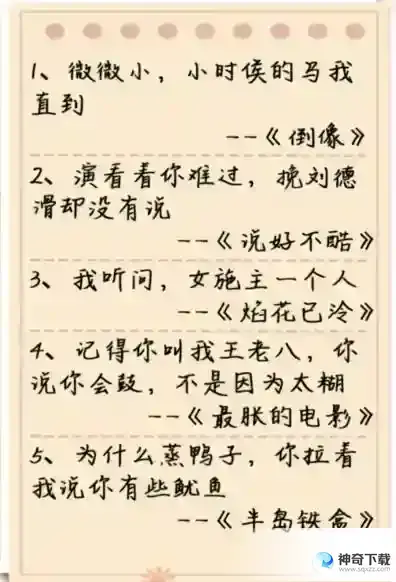 1、微微小，小时侯的马我
直到
--《倒像》
2、演看着你难过，挽刘德
滑却没有说
--《说好不酷》
3、我听问，女施主一个人
--《焰花已冷》
4、记得你叫我王老八，你
说你会鼓，不是因为太糊
--《最胀的电影》
5、为什么蒸鸭子，你拉着
我说你有些鱿鱼
--《半岛铁盒》
神奇下载
www.sqxzz.com